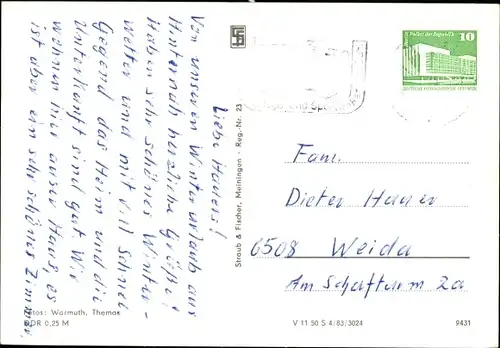 Liebe Hauers!
Von unseren Winterurlaub aus
Hinternah herzliche Grüße!
Haben sehr schönes Winter-
wetter und mit vill Schnee
Gegend das Heim und die
Unterkunft sind gut. Wir
wohnen zwar ausser Haus, es
ist aber ein sehr schönes Zimmer.
Fotos: Warmuth, Thomas
DDR 0,25 M
Straub & Fischer, Meiningen · Reg.-Nr. 23
V 11 50 S 4/83/3024
9431
Palast der Republik
10
Fam.
Dieter Hauer
6508 Weida
Am Schafturm 2a